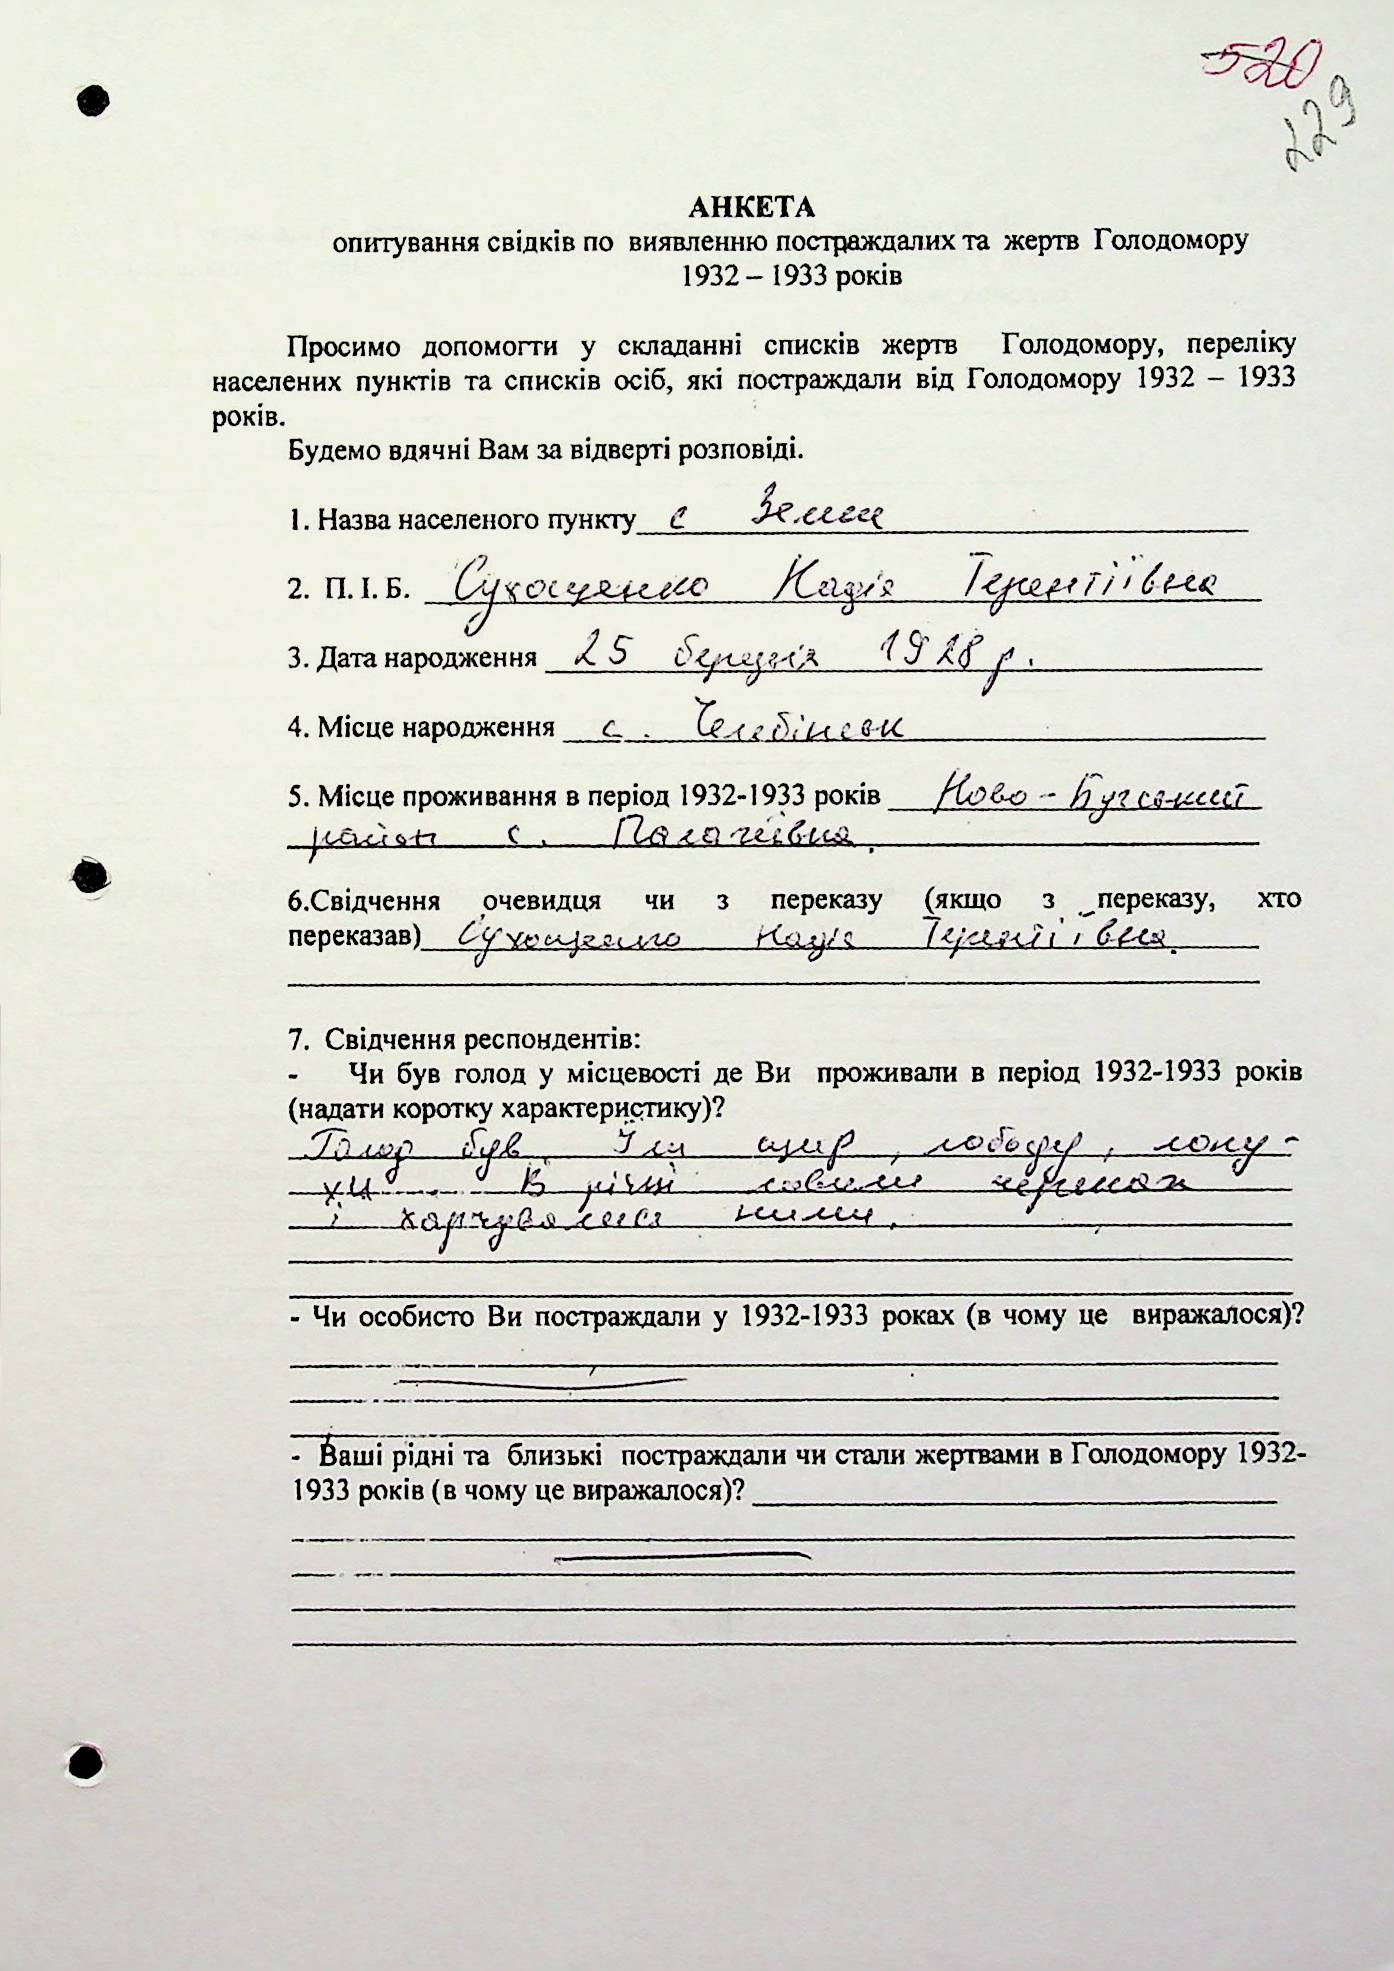 520
229
АНКЕТА
опитування свідків по виявленню постраждалих та жертв Голодомору
1932 – 1933 років
Просимо допомогти у складанні списків жертв Голодомору, переліку
населених пунктів та списків осіб, які постраждали від Голодомору 1932 – 1933
років.
Будемо вдячні Вам за відверті розповіді.
1. Назва населеного пункту с
2. П. І. Б. Сухощенко Надія Терентіївна
3. Дата народження 25 березня 1928 р.
4. Місце народження с. Челюбінськ
5. Місце проживання в період 1932-1933 років Ново-Бугський
район с.
6.Свідчення очевидця чи з переказу (якщо з переказу, хто
переказав) Сухощенко Надія Терентіївна.
7. Свідчення респондентів:
- Чи був голод у місцевості де Ви проживали в період 1932-1933 років
(надати коротку характеристику)?
Голод був. Їли щир, лободу, лопу-
хи. В річці ловили черепах
і харчувалися ними.
- Чи особисто Ви постраждали у 1932-1933 роках (в чому це виражалося)?
- Ваші рідні та близькі постраждали чи стали жертвами в Голодомору 1932-
1933 років (в чому це виражалося)?